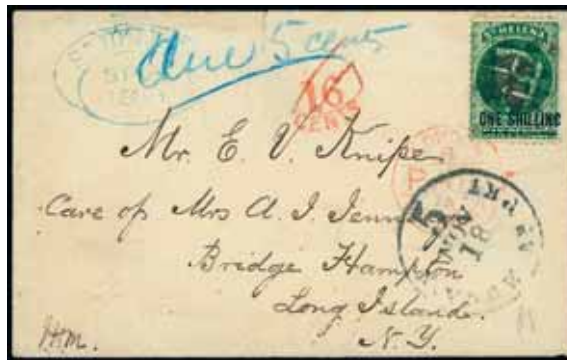 Due 5 cents
16
CENTS
ST HELENA
ONE SHILLING
Mr. E. V. Knipe
Care of Mrs A. I. Jennings
Bridge Hampton
Long Island.
N.Y.
NOV
18
PKT